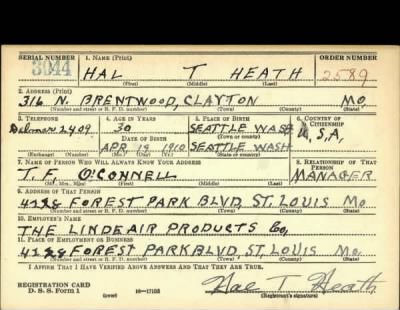 SERIAL NUMBER 1. NAME (Print) ORDER NUMBER
3044 HAL T HEATH 2589
(First) (Middle) (Last)
2. ADDRESS (Print)
316 N. BRENTWOOD, CLAYTON MO.
(Number and street or R. F. D. number) (Town) (County) (State)
3. TELEPHONE 4. AGE IN YEARS 5. PLACE OF BIRTH 6. COUNTRY OF CITIZENSHIP
Delmar 2409 30 SEATTLE WASH U.S.A,
DATE OF BIRTH (Town or county)
APR. 19 1910 SEATTLE WASH
(Exchange) (Number) (Mo.) (Day) (Yr.) (State or country)
7. NAME OF PERSON WHO WILL ALWAYS KNOW YOUR ADDRESS 8. RELATIONSHIP OF THAT PERSON
T. F. O'CONNELL MANAGER
(Mr., Mrs., Miss) (First) (Middle) (Last)
9. ADDRESS OF THAT PERSON
4228 FOREST PARK BLVD, ST, LOUIS MO.
(Number and street or R. F. D. number) (Town) (County) (State)
10. EMPLOYER'S NAME
THE LINDE AIR PRODUCTS Co,
11. PLACE OF EMPLOYMENT OR BUSINESS
4228 FOREST PARK BLVD, ST, LOUIS MO.
(Number and street or R. F. D. number) (Town) (County) (State)
I AFFIRM THAT I HAVE VERIFIED ABOVE ANSWERS AND THAT THEY ARE TRUE.
REGISTRATION CARD
D. S. S. Form 1 (over) 16—17105
Hal T Heath
(Registrant's signature)